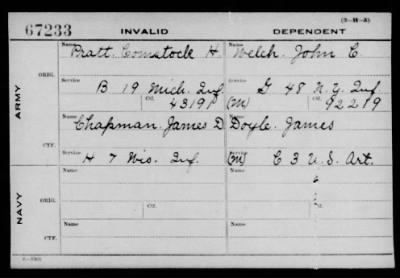 67233 INVALID DEPENDENT (3-M-3)
ARMY
ORIG.
Name Pratt, Comstock H. Name Welch, John C.
Service B 19 Mich. Inf. Service G 48 N.Y. Inf.
Cf. 43191 (M) Cf. 92219
CTF.
Name Chapman, James D. Name Doyle, James
Service H 7 Wis. Inf. Service (M) C 3 U.S. Art.
NAVY
ORIG.
Name Name
Cf. Cf.
CTF.
Name Name